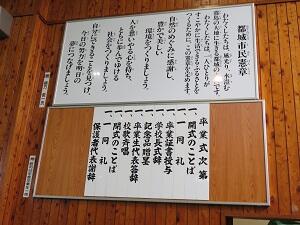 都城市民憲章
わたくしたちは、緑光り、水澄む
霧島の大地に生きる都城市民です。
わたくしたちは、一人ひとりが
すこやかに生活できるふるさとを
つくるために、この憲章を定めます。
自然のめぐみに感謝し、
豊かで美しい
環境をつくりましょう。
人を思いやる心を持ち、
ともに歩んでゆける
社会をつくりましょう。
自分にできることを見つけ、
今日の努力を明日の
夢につなげましょう。
卒業式次第
一、開式のことば
一、一同礼
一、卒業証書授与
一、学校長式辞
一、記念品贈呈
一、卒業生代表答辞
一、校歌斉唱
一、閉式のことば
一、一同礼
一、保護者代表謝辞